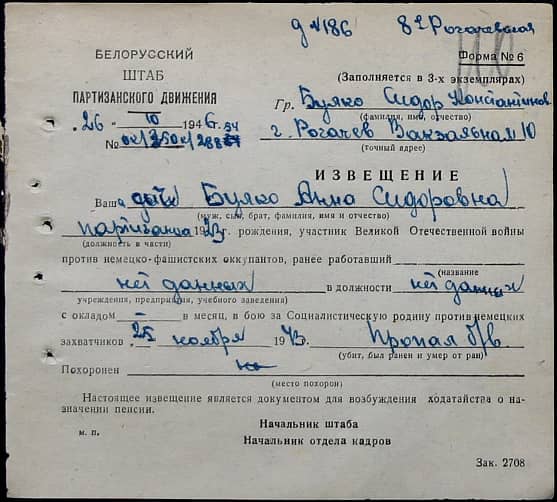 д №186 8ª Рогачевская
БЕЛОРУССКИЙ
ШТАБ
ПАРТИЗАНСКОГО ДВИЖЕНИЯ
Форма № 6
(Заполняется в 3-х экземплярах)
Гр. Буяко Сидор Константинов
(фамилия, имя, отчество)
„26 IV 1946 г.
г. Рогачев Вокзальная 10
№
(точный адрес)
ИЗВЕЩЕНИЕ
Ваша дочь Буяко Анна Сидоровна
(муж, сын, брат, фамилия, имя и отчество)
партизанка 1923 г. рождения, участник Великой Отечественной войны
(должность в части)
против немецко-фашистских оккупантов, ранее работавший
(название
нет данных в должности нет данных
учреждения, предприятия, учебного заведения)
с окладом — в месяц, в бою за Социалистическую родину против немецких
захватчиков „25 ноября 1943 г. Пропал б/в.
(убит, был ранен и умер от ран)
Похоронен
(место похорон)
Настоящее извещение является документом для возбуждения ходатайства о на-
значении пенсии.
Начальник штаба
м. п.
Начальник отдела кадров
Зак. 2708